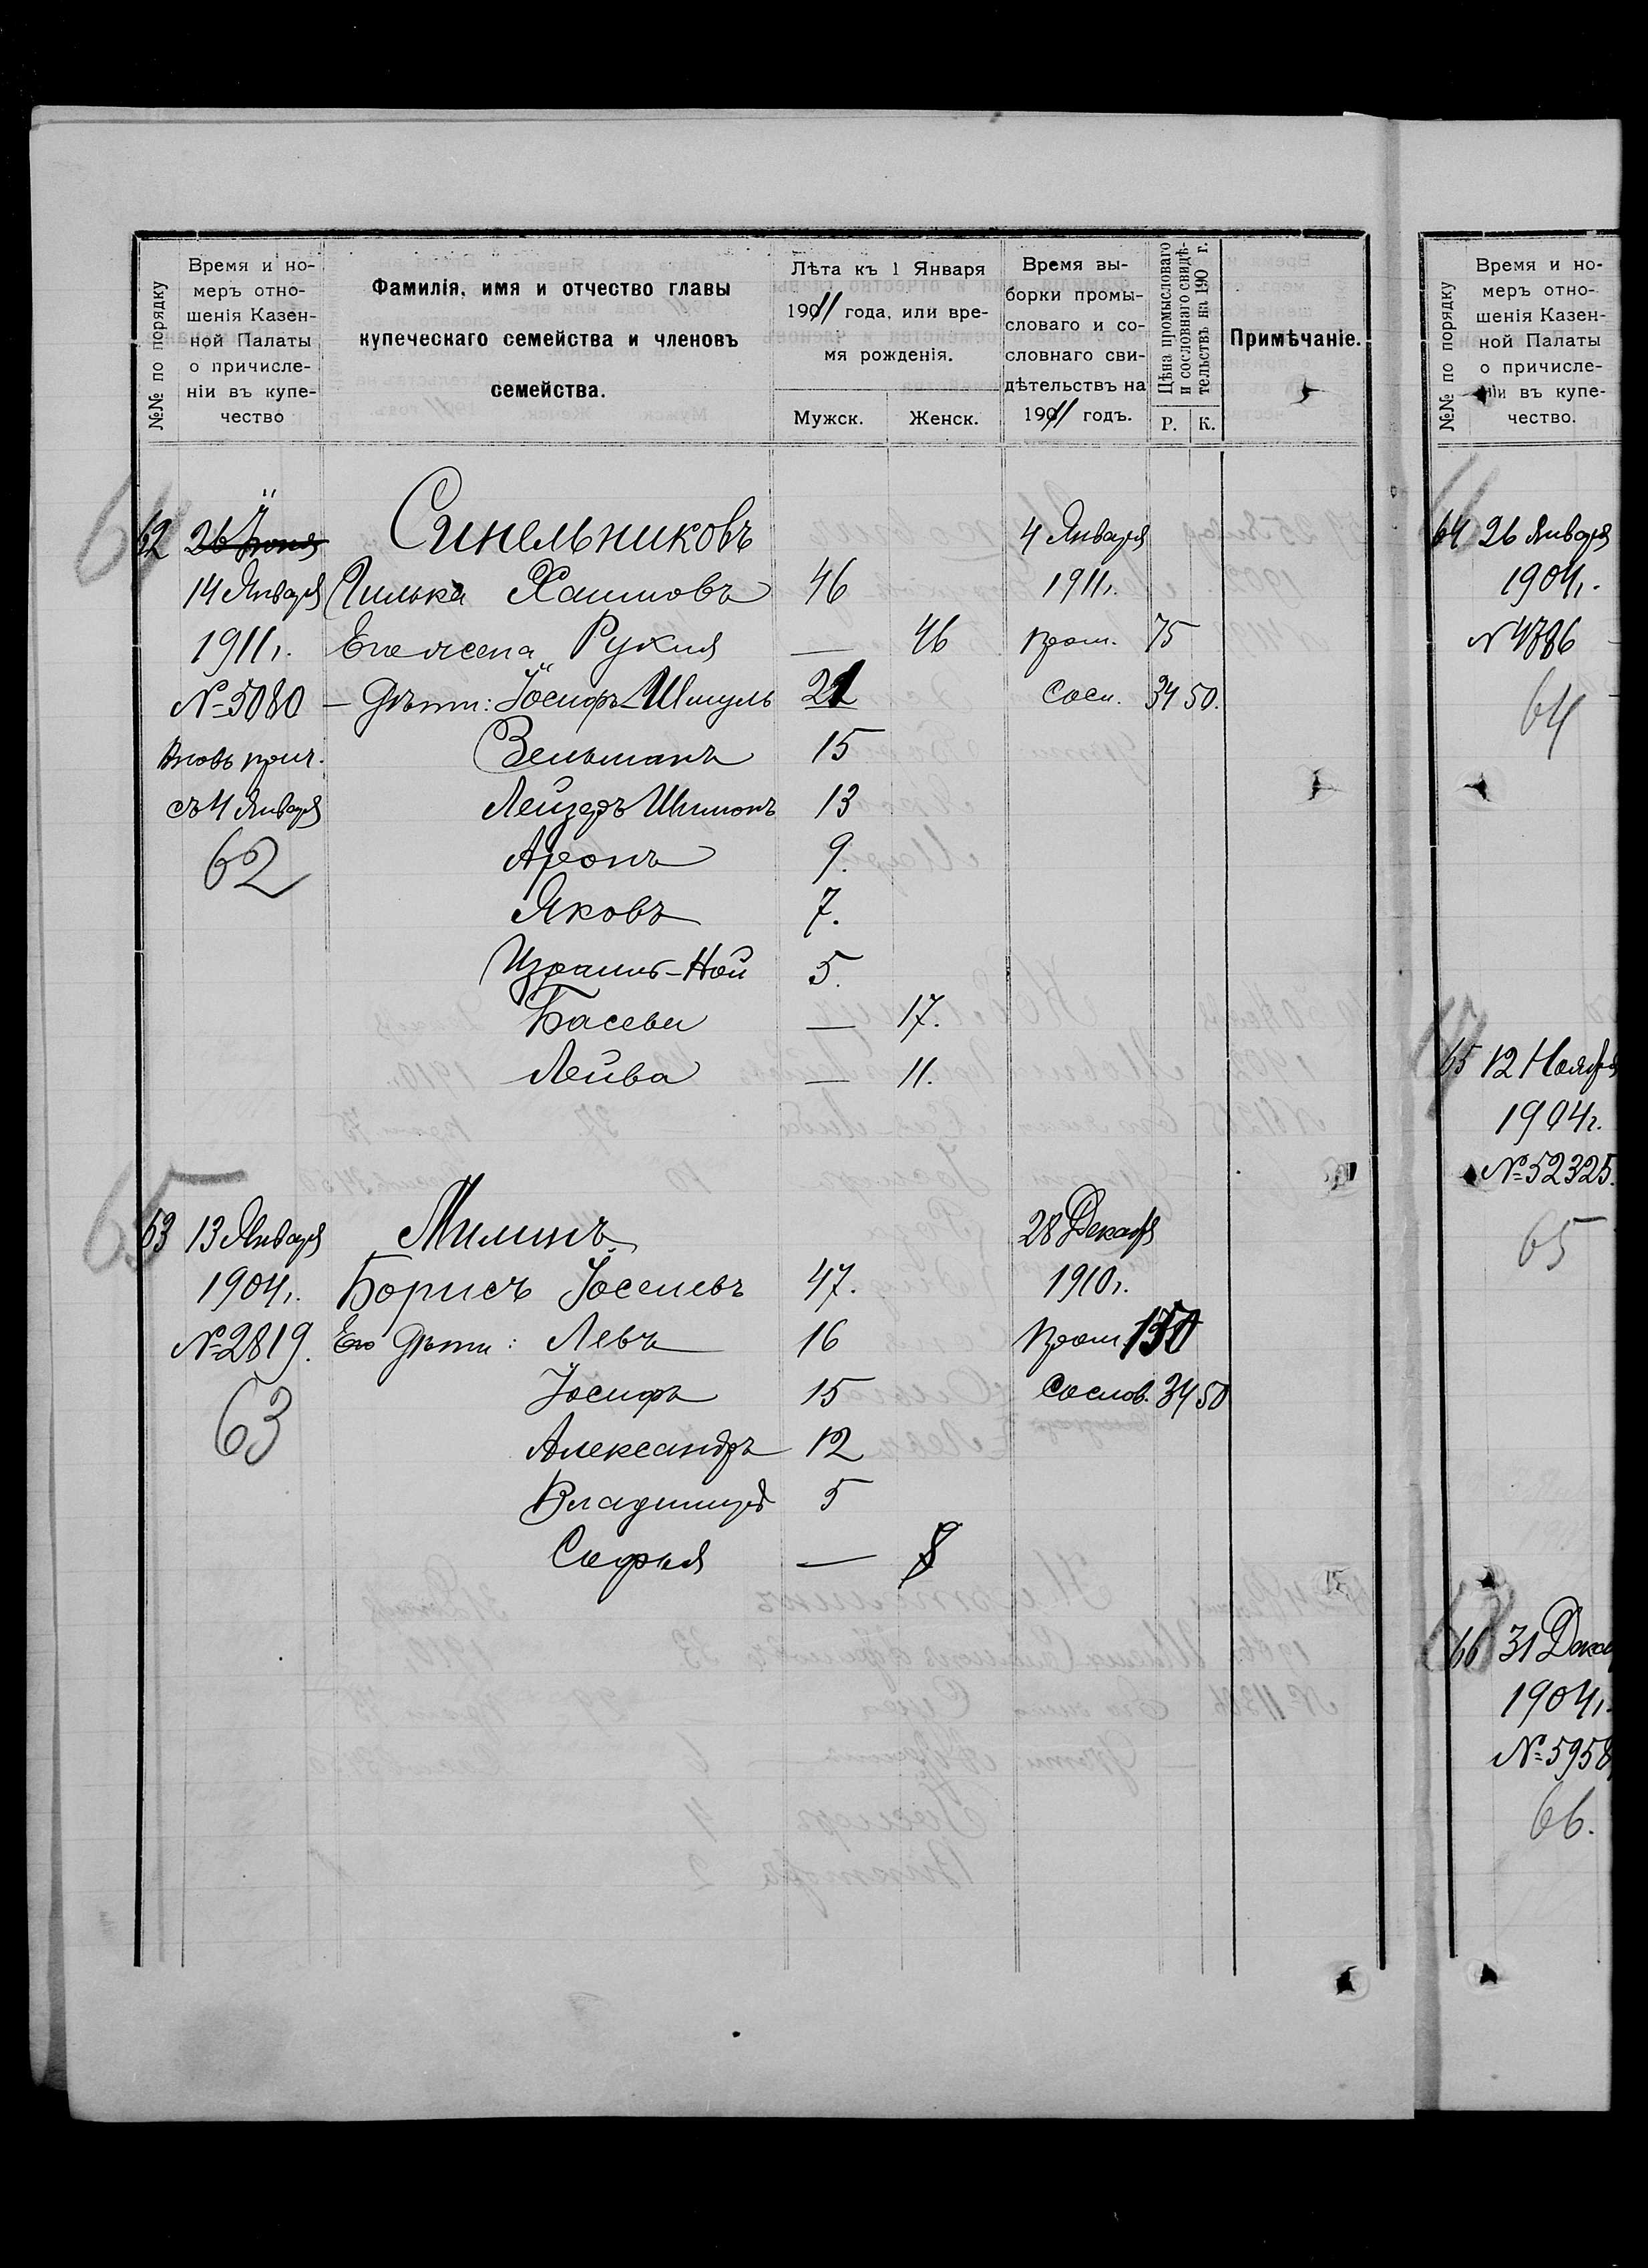 №№ по порядку
Время и но-
меръ отно-
шенія Казен-
ной Палаты
о причисле-
ніи въ купе-
чество
Фамилія, имя и отчество главы
купеческаго семейства и членовъ
семейства.
Лѣта къ 1 Января
19011 года, или вре-
мя рожденія.
Мужск. Женск.
Время вы-
борки промы-
словаго и со-
словнаго сви-
дѣтельствъ на
19011 годъ.
Цѣна промысловаго
и сословнаго свидѣ-
тельствъ на 190 г.
Р. К.
Примѣчаніе.
64
62 26 Іюня Синельниковъ 4 Января
14 Января Гилька Хаимовъ 46 1911г.
1911г. Его жена Рухия — 46 пром. 75
№ 5080 — Дѣти: Іосифъ-Шмуль 21 Сосл. 34 50.
Вновь прич. Зельманъ 15
съ 4 Января Лейзеръ Шимонъ 13
62 Аронъ 9.
Яковъ 7.
Израиль-Ной 5.
Басева — 17.
Лейва — 11.
65
63 13 Января Милинъ 28 Декабря
1904г. Борисъ Іоселевъ 47. 1910г.
№ 2819. Его Дѣти: Левъ 16 пром. 150
63 Іосифъ 15 Сослов. 34 50
Александръ 12
Владиміръ 5
Софья — 8
№№ по порядку
Время и но-
меръ отно-
шенія Казен-
ной Палаты
о причисле-
ніи въ купе-
чество.
64 26 Января
1904г.
№ 4786
64
65 12 Ноября
1904г.
№ 52325.
65
66 31 Дека
1904г.
№ 5958
66.